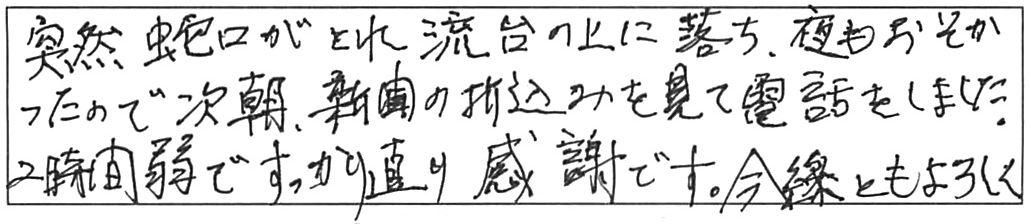 突然蛇口がとれ流台の上に落ち、夜もおそか
ったので次朝、新聞の折込みを見て電話をしました。
2時間弱ですっかり直り感謝です。今後ともよろしく